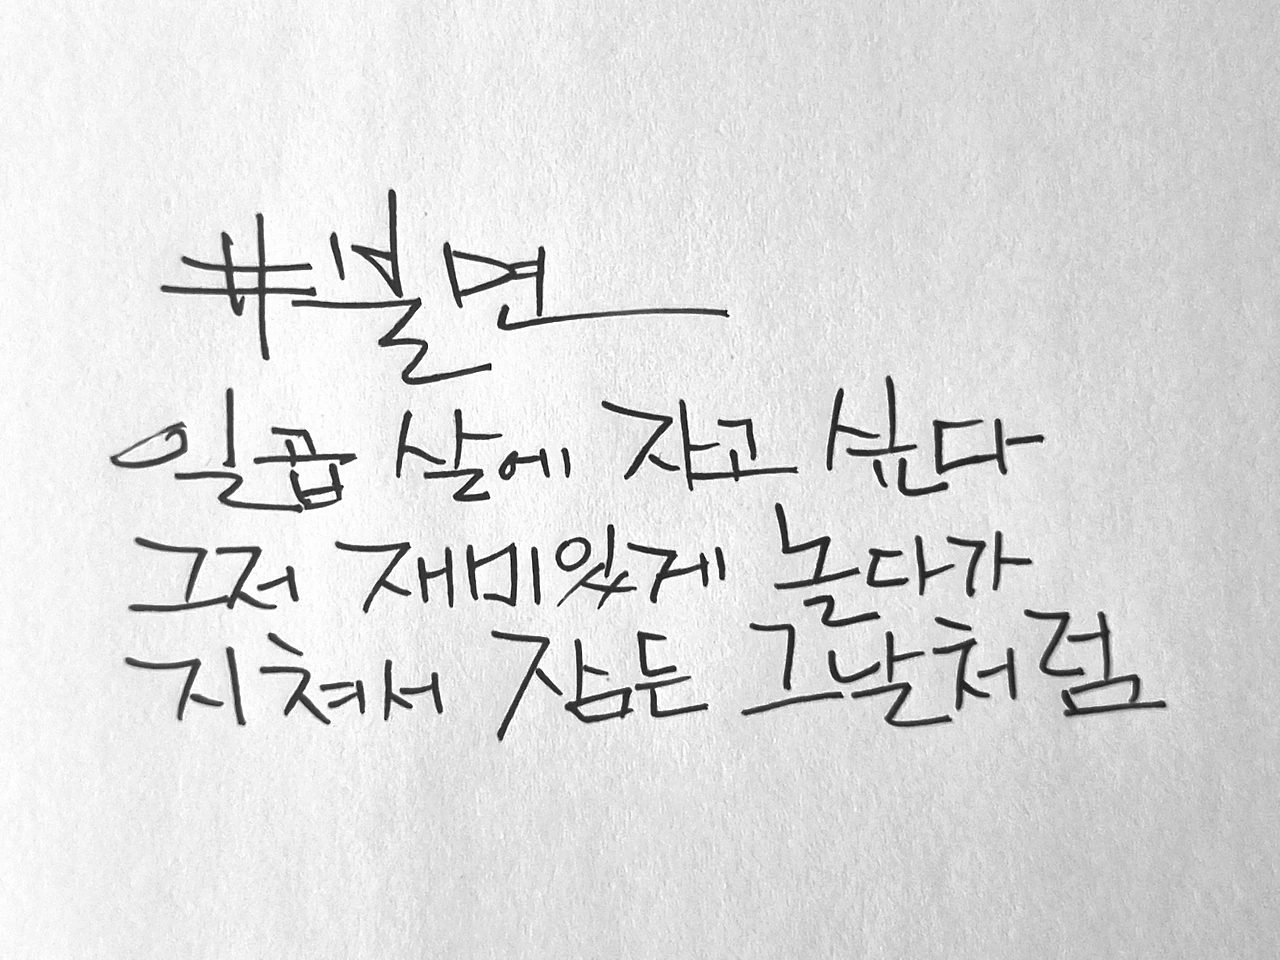 #불면
일곱 살에 자고 싶다
그저 재미있게 놀다가
지쳐서 잠든 그날처럼